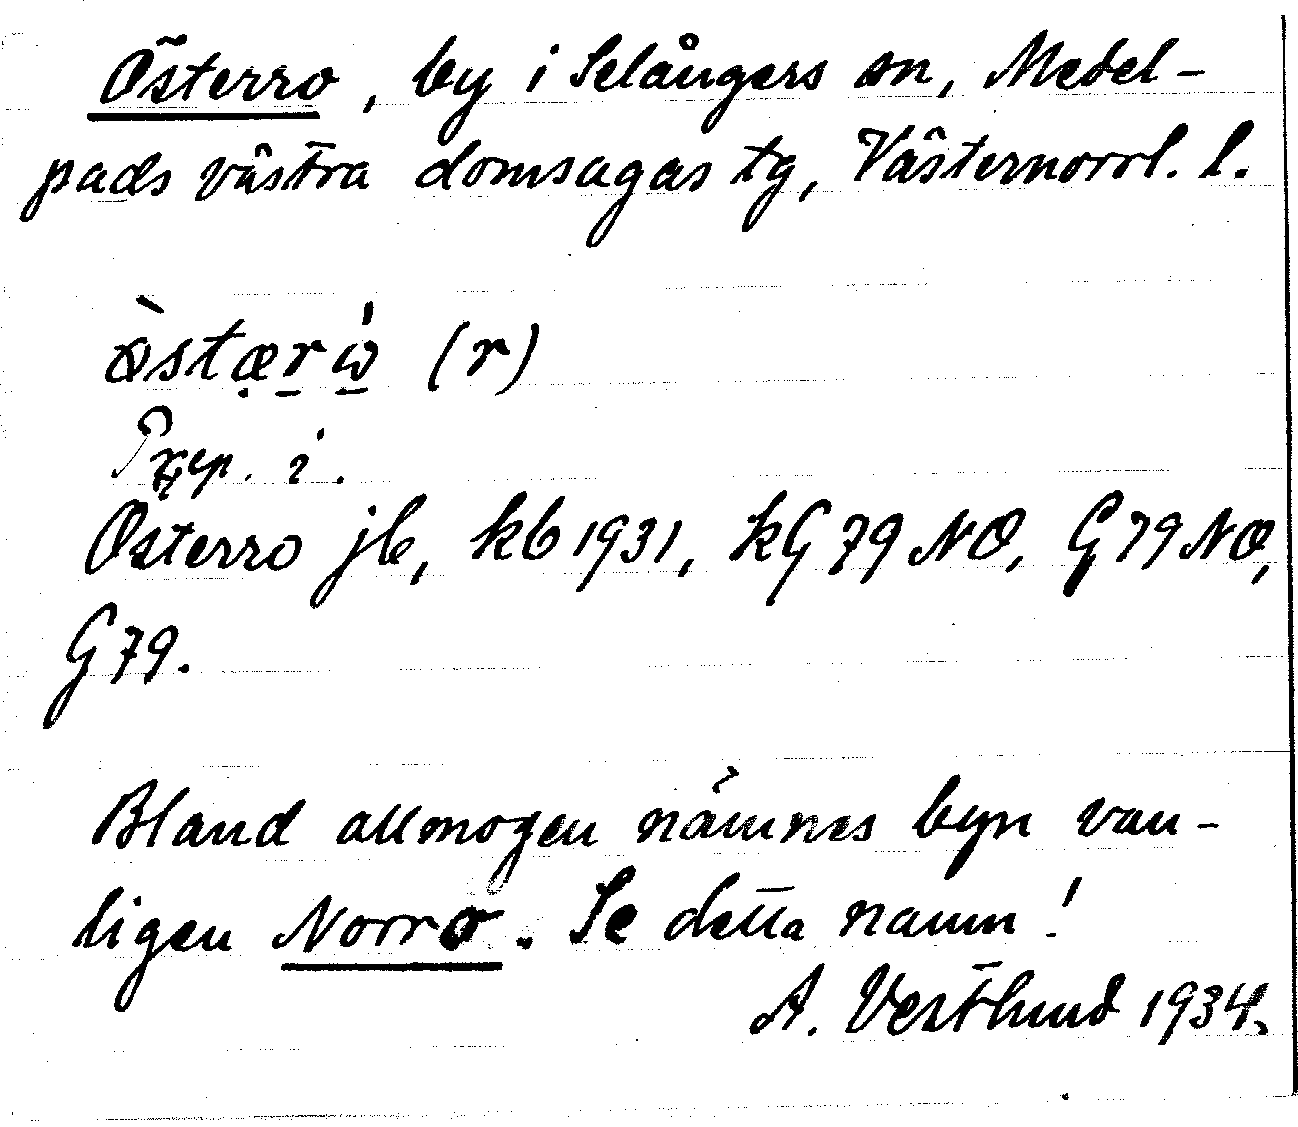 Österro, by i Selångers sn, Medel-
pads västra domsagas tg, Västernorrl. l.
östærω (r)
Prep. i.
Österro jb, kb 1931, kG 79 NO, G 79 NO,
G 79.
Bland allmogen nämnes byn van-
ligen Norro. Se detta namn!
A. Vestlund 1934.